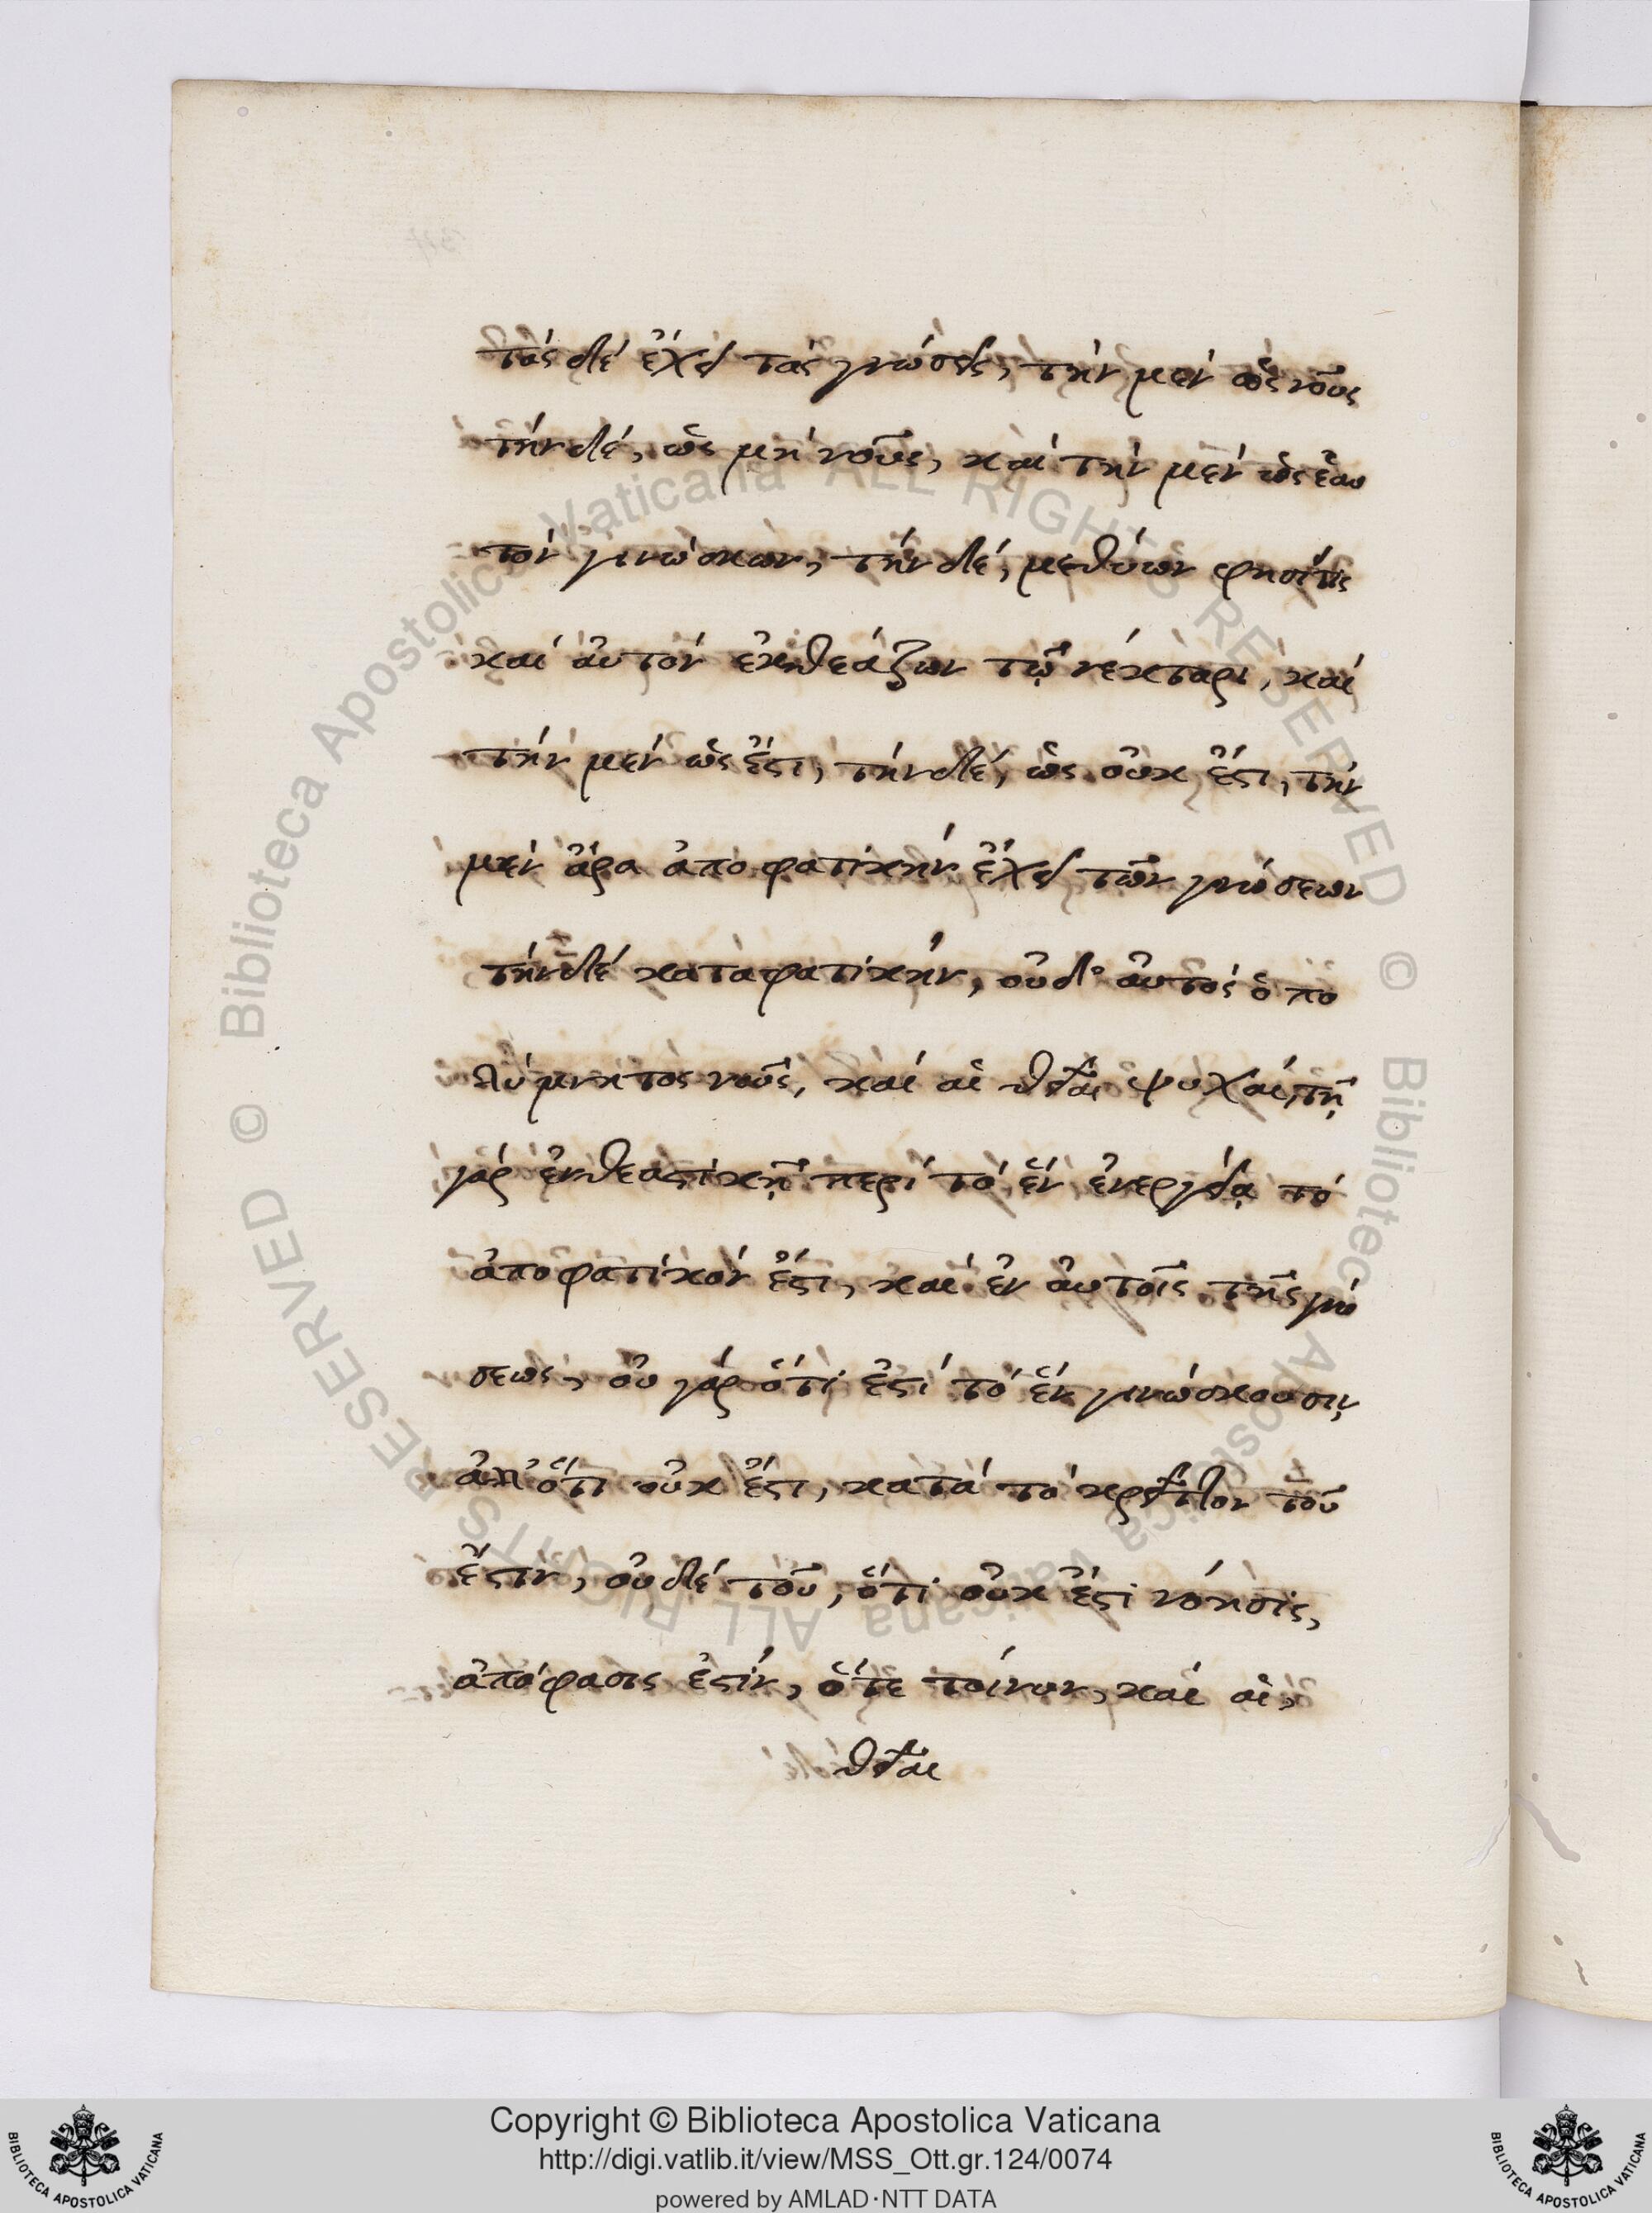 τὰς δὲ ἔχει τὰς γνώσεις, τὴν μὲν ὡς νοῦς
τὴν δὲ, ὡς μὴ νοῦς, καὶ τὴν μὲν ὡς ἑαυ
τὸν γινώσκων, τὴν δὲ, μεθύων φησί τις
καὶ αὐτὸν ἐκθεάζων τῷ νέκταρι, καὶ
τὴν μὲν ὡς ἔστι, τὴν δὲ, ὡς οὐκ ἔστι, τὴν
μὲν ἄρα ἀποφατικὴν ἔχει τῶν γνώσεων
τὴν δὲ καταφατικὴν, οὐδ' αὐτὸς ὁ πο
λύμνητος νοῦς, καὶ αἱ θεῖαι ψυχαὶ, τῇ
γὰρ ἐνθεαστικῇ περὶ τὸ ἓν ἐνεργείᾳ τὸ
ἀποφατικόν ἔστι, καὶ ἐν αὐτοῖς τῆς γνώ
σεως, οὐ γὰρ ὅτι ἐστὶ τὸ ἓν γινώσκουσιν,
ἀλλ' ὅτι οὐκ ἔστι, κατὰ τὸ κρεῖττον τοῦ
ἔστιν, οὐδὲ τοῦ, ὅτι οὐκ ἔστι νόησις,
ἀπόφασις ἐστίν, ὅτε τοίνυν, καὶ αἱ,
θεῖαι
Copyright © Biblioteca Apostolica Vaticana
http://digi.vatlib.it/view/MSS_Ott.gr.124/0074
powered by AMLAD·NTT DATA